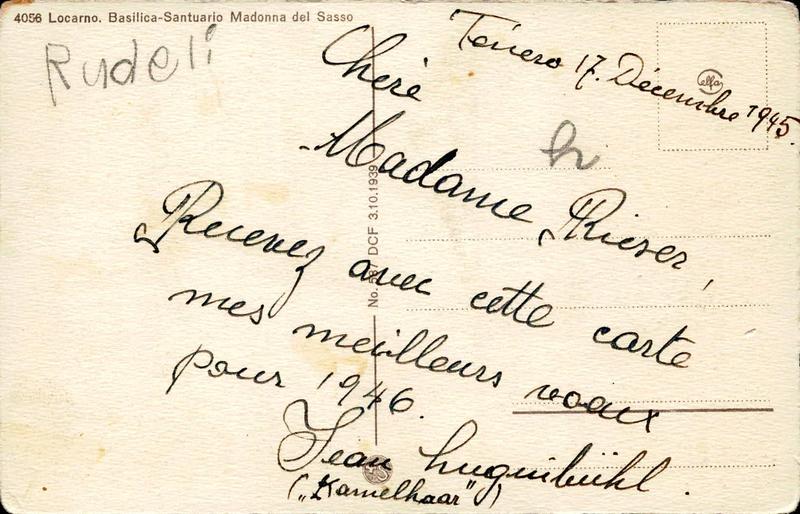 4056 Locarno. Basilica-Santuario Madonna del Sasso
Rudeli
Tenero 17. Décembre 1945.
Chère
Madame Rieser,
Recevez avec cette carte
mes meilleurs voeux
pour 1946.
Jean Huguibühl.
("Kamelhaar")
DCF 3.10.1939
No.